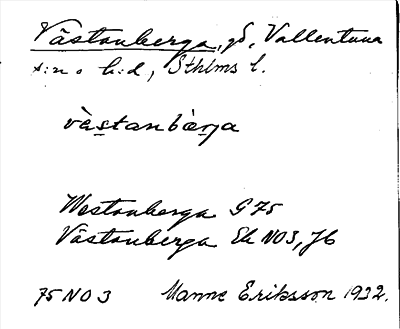 Västanberga, gd, Vallentuna
s:n o h:d, Sthlms l.
vàstanbàrja
Westanberga G 75
Västanberga Ek NO3, Jb
75 NO 3 Manne Eriksson 1932.